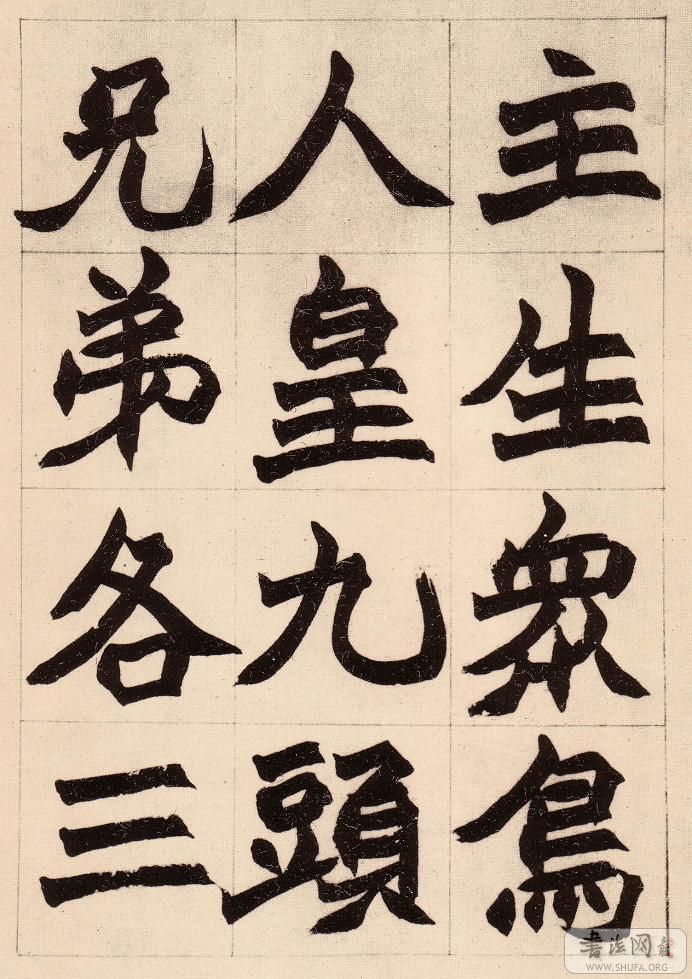 主生衆鳥
人皇九頭
兄弟各三
书法网
WWW.SHUFA.ORG